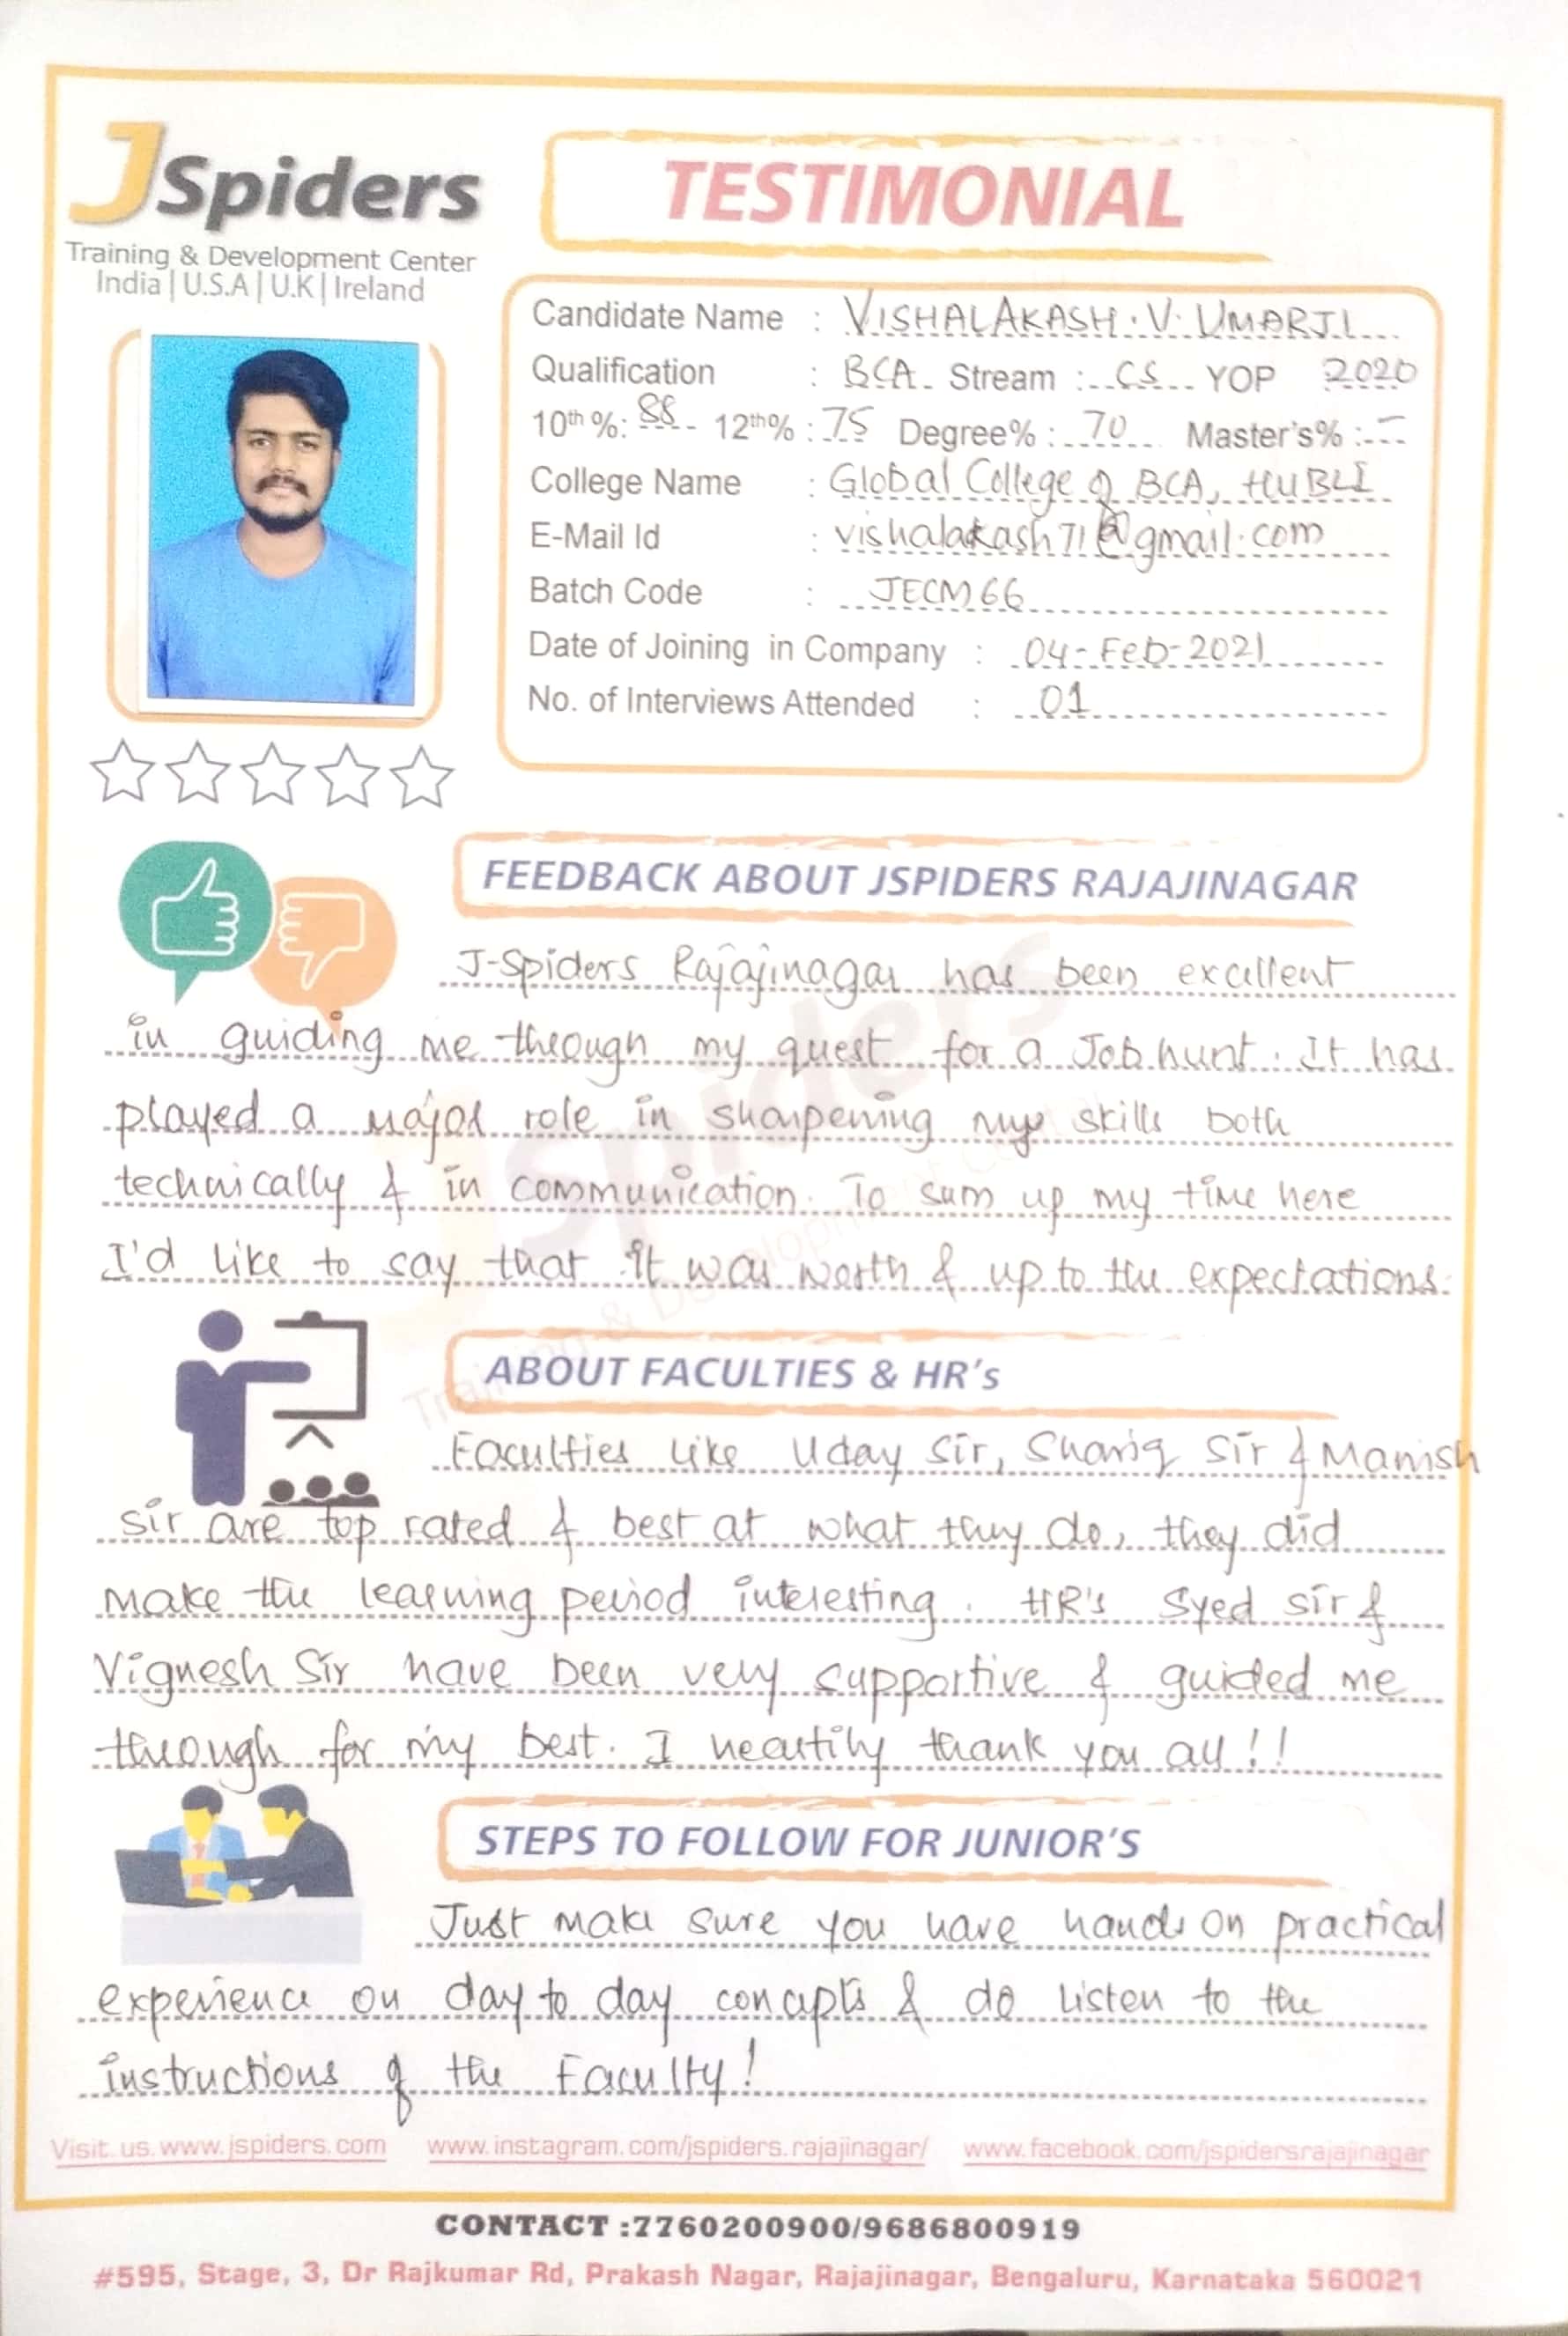 JSpiders
Training & Development Center
India | U.S.A | U.K | Ireland
TESTIMONIAL
Candidate Name : VISHALAKASH.V.UMARJI
Qualification : BCA Stream : CS YOP 2020
10th %: 88 12th% : 75 Degree% : 70 Master's% : -
College Name : Global College of BCA, HUBLI
E-Mail Id : vishalakash71@gmail.com
Batch Code : JECM66
Date of Joining in Company : 04-Feb-2021
No. of Interviews Attended : 01
FEEDBACK ABOUT JSPIDERS RAJAJINAGAR
J-Spiders Rajajinagar has been excellent
in guiding me through my quest for a Job hunt. It has
played a major role in sharpening my skills both
technically & in communication. To sum up my time here
I'd like to say that it was worth & up to the expectations.
ABOUT FACULTIES & HR's
Faculties like Uday Sir, Shariq Sir & Manish
sir are top rated & best at what they do, they did
make the learning period interesting. HR's Syed sir &
Vignesh Sir have been very supportive & guided me
through for my best. I heartily thank you all!!
STEPS TO FOLLOW FOR JUNIOR'S
Just make sure you have hands on practical
experience on day to day concepts & do listen to the
instructions of the Faculty!
Visit us. www.jspiders.com www.instagram.com/jspiders.rajajinagar/ www.facebook.com/jspidersrajajinagar
CONTACT :7760200900/9686800919
#595, Stage, 3, Dr Rajkumar Rd, Prakash Nagar, Rajajinagar, Bengaluru, Karnataka 560021